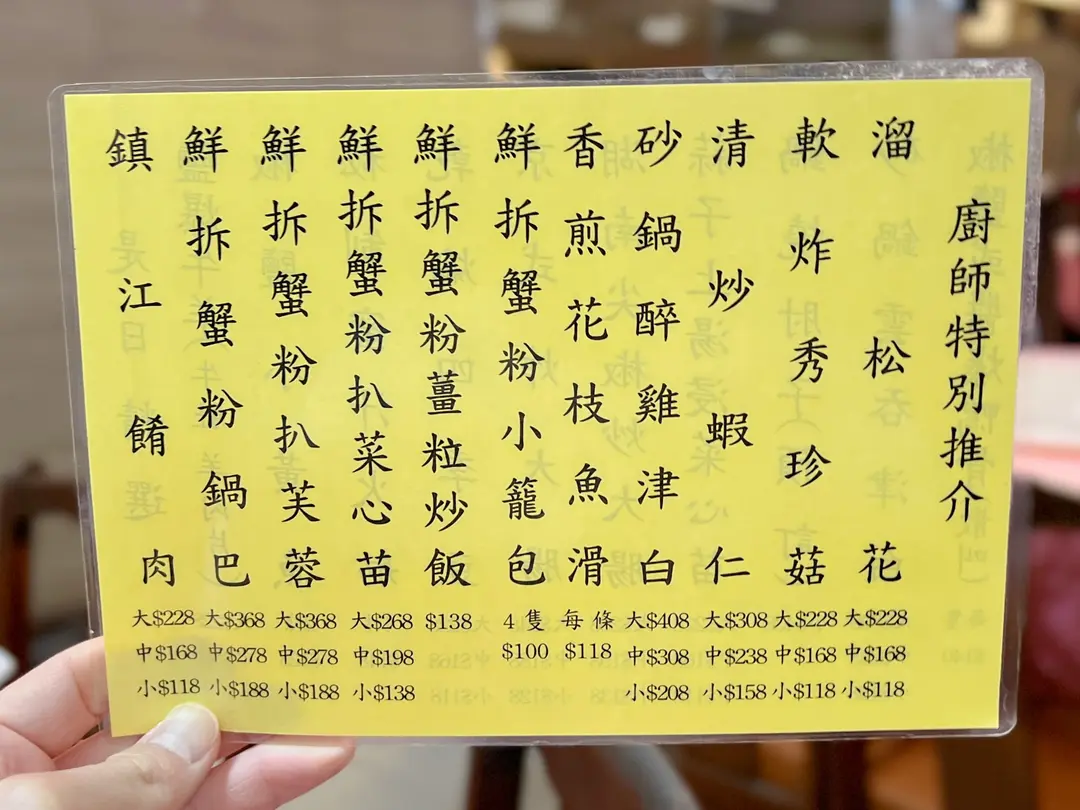 廚師特別推介
溜松花
大$228
中$168
小$118
軟炸秀珍菇
大$228
中$168
小$118
清炒蝦仁
大$308
中$238
小$158
砂鍋醉雞津白
大$408
中$308
小$208
香煎花枝魚滑
每條
$118
鮮拆蟹粉小籠包
4隻
$100
鮮拆蟹粉薑粒炒飯
$138
鮮拆蟹粉扒菜心苗
大$268
中$198
小$138
鮮拆蟹粉扒芙蓉
大$368
中$278
小$188
鮮拆蟹粉鍋巴
大$368
中$278
小$188
鎮江餚肉
大$228
中$168
小$118